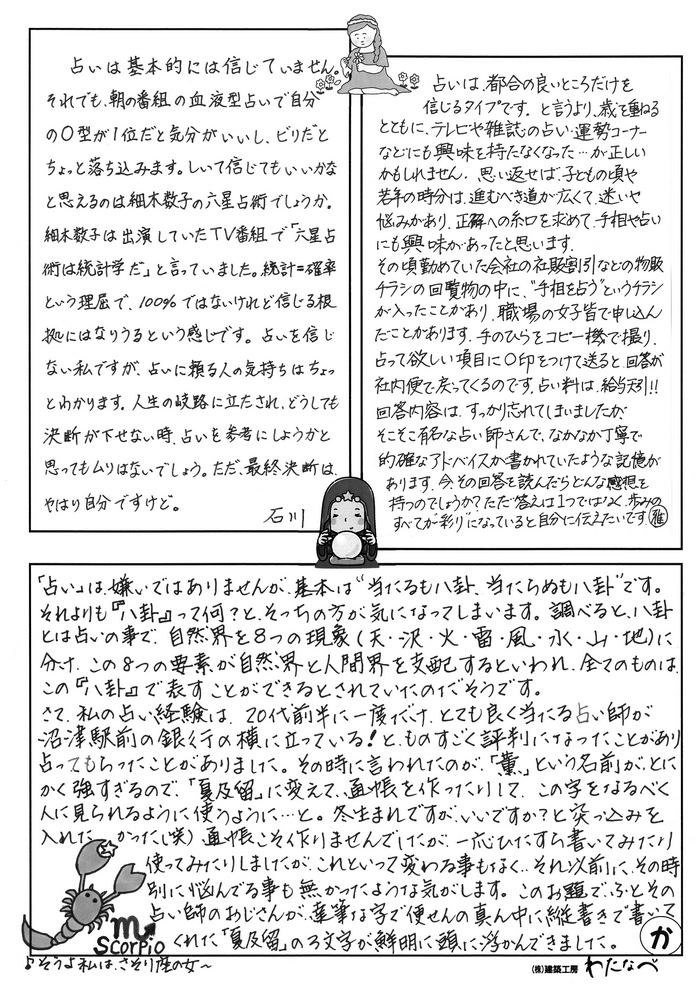 占いは基本的には信じていません。
それでも、朝の番組の血液型占いで自分
のO型が1位だと気分がいいし、ビリだと
ちょっと落ち込みます。しいて信じてもいいかな
と思えるのは細木数子の六星占術でしょうか。
細木数子は出演していたTV番組で「六星占
術は統計学だ」と言っていました。統計=確率
という理屈で、100%ではないけれど信じる根
拠にはなりうるという感じです。占いを信じ
ない私ですが、占いに頼る人の気持ちはちょっ
とわかります。人生の岐路に立たされ、どうしても
決断が下せない時、占いを参考にしようかと
思ってもムリはないでしょう。ただ、最終決断は、
やはり自分ですけど。
石川
占いは、都合の良いところだけを
信じるタイプです。と言うより、歳を重ねる
とともに、テレビや雑誌の占い・運勢コーナー
などにも興味を持たなくなった…が正しい
かもしれません。思い返せば、子どもの頃や
若年の時分は、進むべき道が広くて、迷いや
悩みがあり、正解への糸口を求めて、手相や占い
にも興味があったと思います。
その頃勤めていた会社の社販割引などの物販
チラシの回覧物の中に、"手相を占う"というチラシ
が入ったことがあり、職場の女子皆で申し込ん
だことがあります。手のひらをコピー機で撮り、
占って欲しい項目に〇印をつけて送ると、回答が
社内便で戻ってくるのです。占い料は、給与天引!!
回答内容は、すっかり忘れてしまいましたが
そこそこ有名な占い師さんで、なかなか丁寧で
的確なアドバイスが書かれていたような記憶が
あります。今その回答を読んだらどんな感想を
持つのでしょうか?ただ答えは1つではなく、歩みの
すべてが"彩り"になっていると自分に伝えたいです。雅
「占い」は、嫌いではありませんが、基本は"当たるも八卦、当たらぬも八卦"です。
それよりも『八卦』って何?と、そっちの方が気になってしまいます。調べると、八卦
とは占いの事で、自然界を8つの現象(天・沢・火・雷・風・水・山・地)に
分け、この8つの要素が自然界と人間界を支配するといわれ、全てのものは、
この『八卦』で表すことができるとされていたのだそうです。
さて、私の占い経験は、20代前半に一度だけ、とても良く当たる占い師が
沼津駅前の銀行の横に立っている!と、ものすごく評判になったことがあり
占ってもらったことがありました。その時に言われたのが、「薫」という名前が、とに
かく強すぎるので、「夏及留」に変えて、通帳を作ったりして、この字をなるべく
人に見られるように使うように…と。冬生まれですが、いいですか?と突っ込みを
入れたかった(笑) 通帳こそ作りませんでしたが、一応ひたすら書いてみたり
使ってみたりしましたが、これといって変わる事もなく…それ以前に、その時
別に悩んでる事も無かったような気がします。このお題で、ふとその
占い師のおじさんが、達筆な字で便せんの真ん中に縦書きで書いて
くれた「夏及留」の3文字が鮮明に頭に浮かんできました。か
Scorpio
♪そうよ私は、さそり座の女～
(株)建築工房 わたなべ